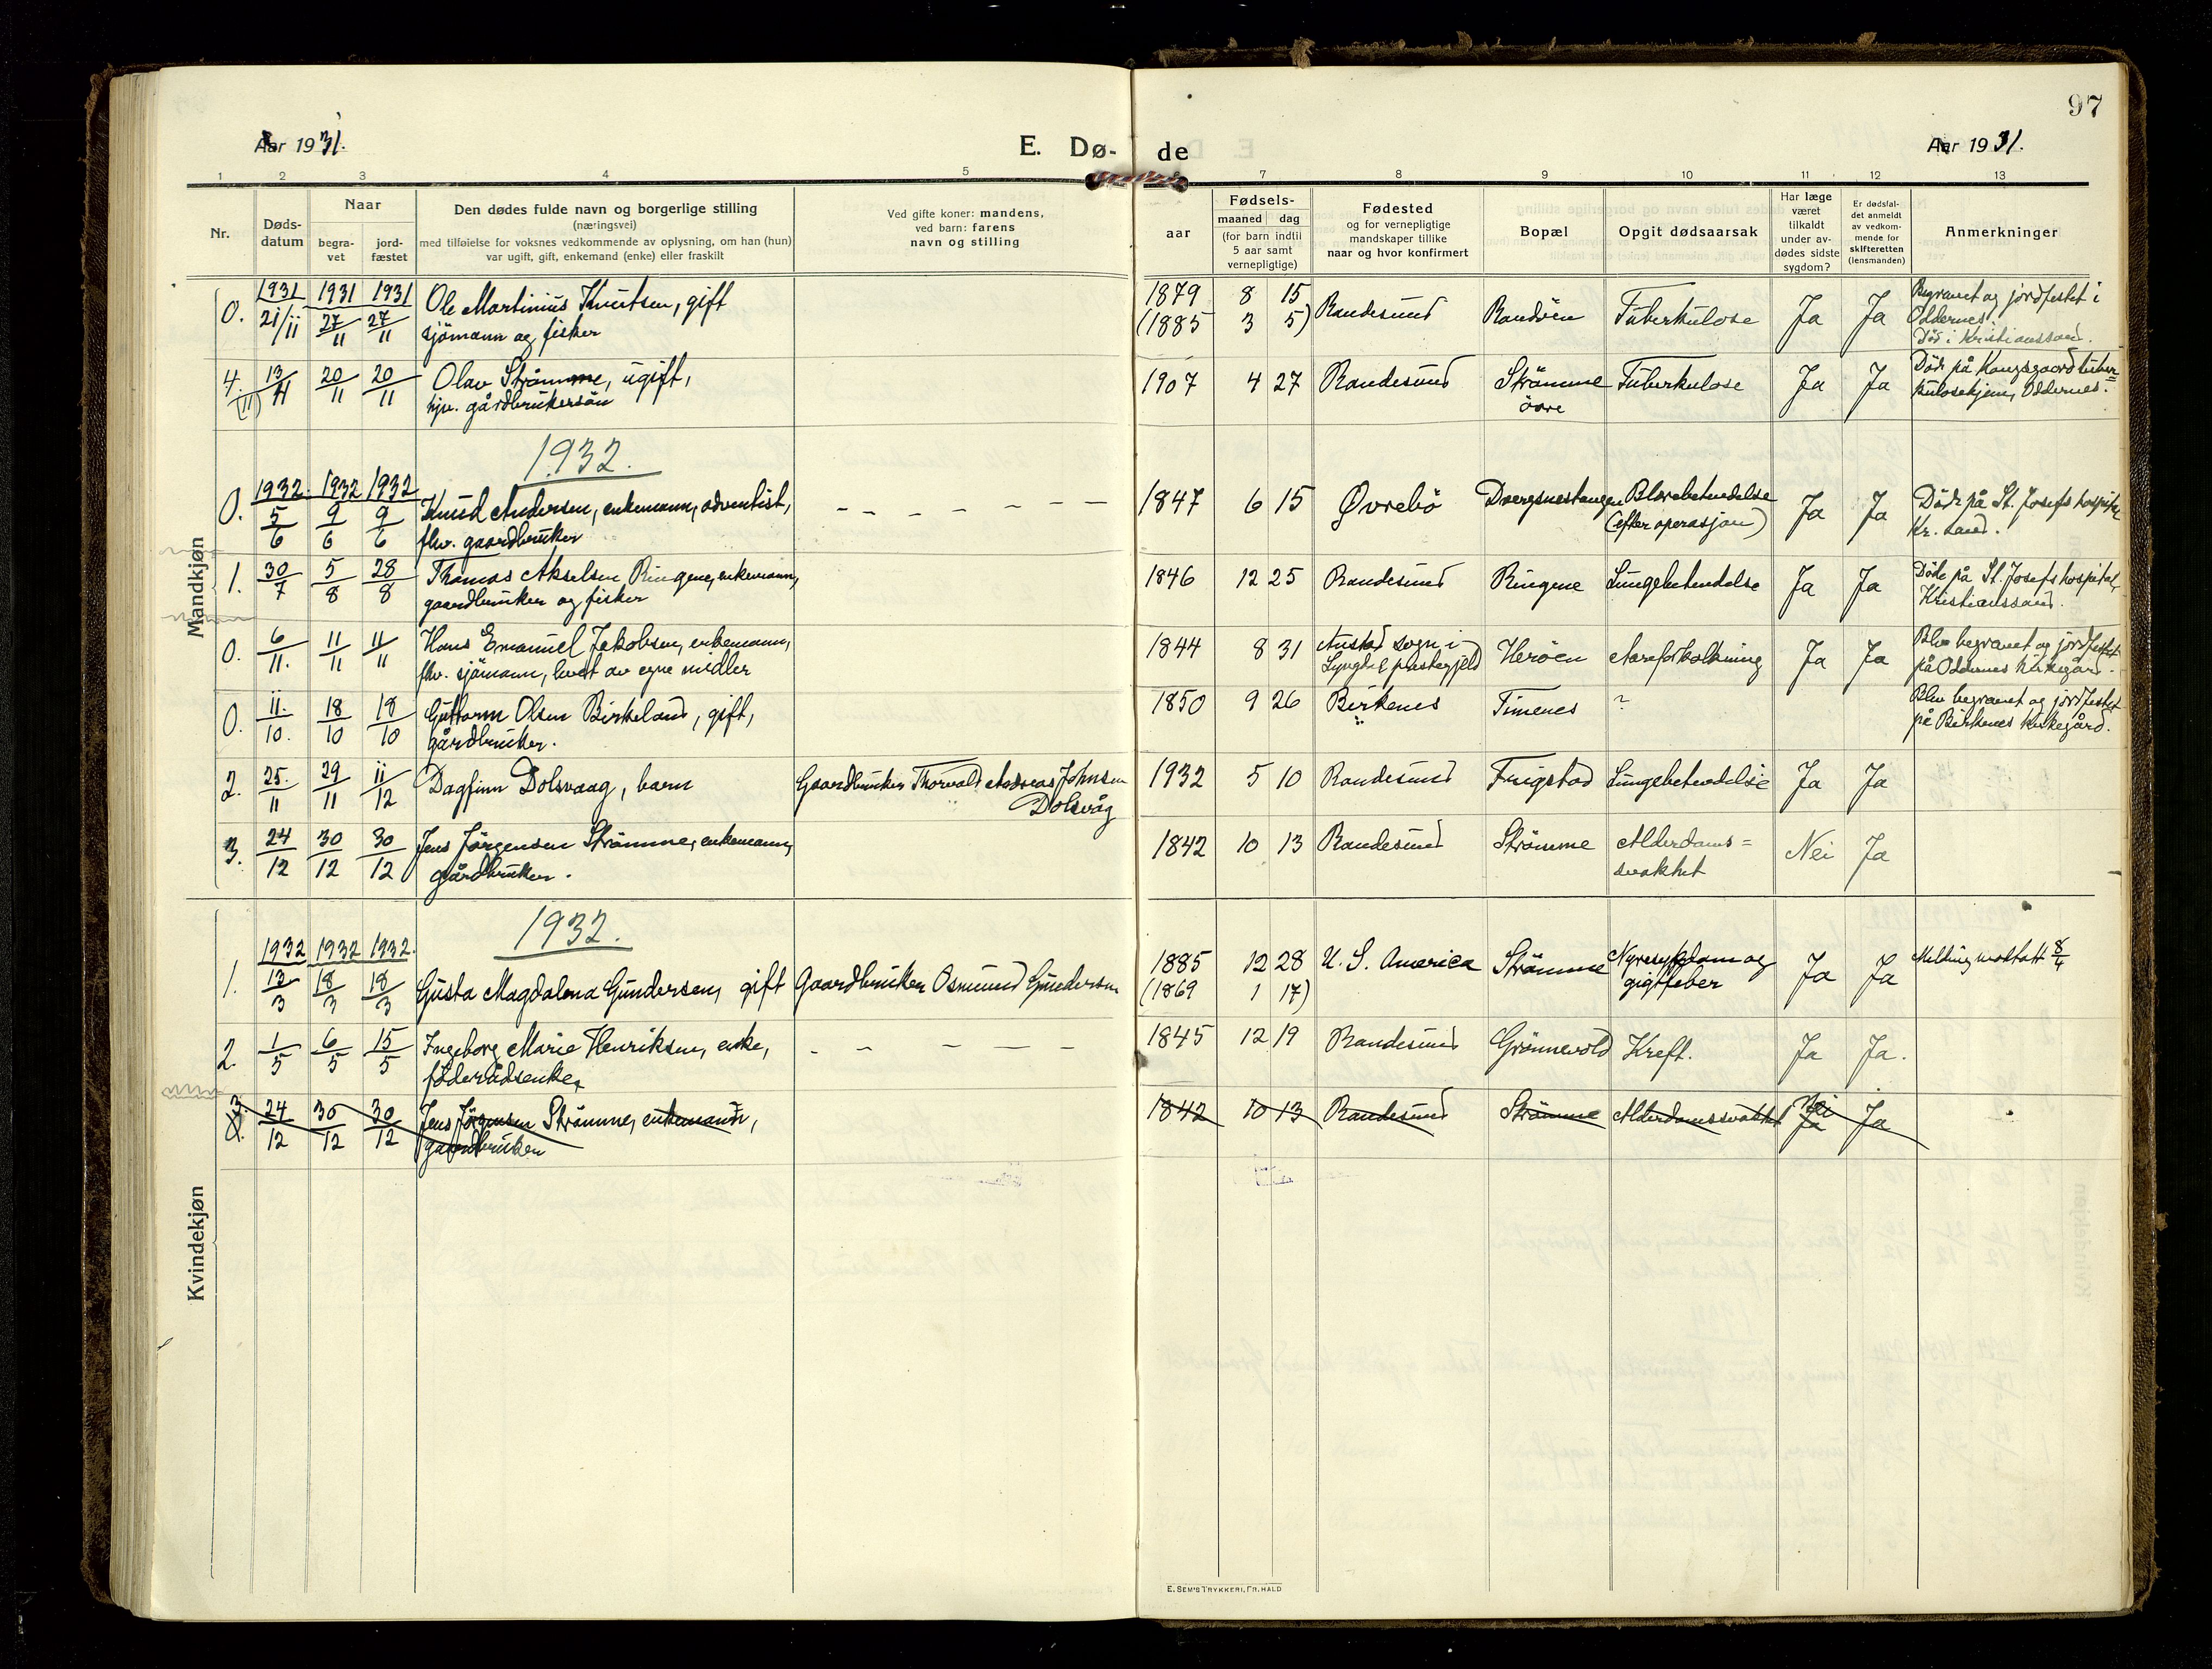 97
Aar 1931.
E. Dø-
de
Aar 1931.
1 2 3 4 5 7 8 9 10 11 12 13
Nr.
Døds-
datum
Naar
begra-
vet
jord-
fæstet
Den dødes fulde navn og borgerlige stilling
(næringsvei)
med tilføielse for voksnes vedkommende av oplysning, om han (hun)
var ugift, gift, enkemand (enke) eller fraskilt
Ved gifte koner: mandens,
ved barn: farens
navn og stilling
Fødsels-
aar
maaned dag
(for barn indtil
5 aar samt
vernepligtige)
Fødested
og for vernepligtige
mandskaper tillike
naar og hvor konfirmert
Bopæl
Opgit dødsaarsak
Har læge
været
tilkaldt
under av-
dødes sidste
sygdom?
Er dødsfal-
det anmeldt
av vedkom-
mende for
skifteretten
(lensmanden)
Anmerkninger
Mandkjøn
1931 1931 1931
0. 21/11 27/11 27/11 Ole Martinius Knutsen, gift
sjömann og fisker
1879 8 15 Randesund Randöen Tuberkulose Ja Ja Begravet og jordfestet i
(1885 3 5)
Oddernes.
Död i Kristianssand.
4. 13/11 20/11 20/11 Olav Strömme, ugift,
(11) hjv. gårdbrukersön
1907 4 27 Randesund Strömme Tuberkulose Ja Ja Döde på Kongsgaard tuber=
övre
kulosehjem, Oddernes.
1932.
1932. 1932 1932
0. 5/6 9/6 9/6 Knud Andersen, enkemann, adventist,
fhv. gaardbruker
1847 6 15 Øvrebö Dvergsnestangen Blærebetendelse Ja Ja Döde på St. Josefs hospital
(efter operasjon)
Kr. sand.
1. 30/7 5/8 28/8 Thomas Akselsen Ringene, enkemann,
gaardbruker og fisker
1846 12 25 Randesund Ringene Lungebetendelse Ja Ja Döde på St. Josefs hospital,
Kristianssand.
0. 6/11. 11/11 11/11 Hans Emanuel Jakobsen, enkemann,
fhv. sjömann, levet av egne midler
1844 8 31 Austad sogn i Heröen Aareforkalkning Ja Ja Blev begravet og jordfestet
Lyngdal prestegjeld
på Oddernes kirkegård.
0. 11./10. 18/10 18/10 Guttorm Olsen Birkeland, gift,
gårdbruker.
1850 9 26 Birkenes Timenes ? Blev begravet og jordfestet
på Birkenes kirkegård.
2. 25./11 29/11 11/12 Dagfinn Dolsvaag, barn Gaardbruker Thorvald Andreas Johnsen
Dolsvåg
1932 5 10 Randesund Frigstad Lungebetendelse Ja Ja
3. 24/12 30/12 30/12 Jens Jörgensen Strömme, enkemann,
gårdbruker.
1842 10 13 Randesund Strömme Alderdoms= Nei Ja
svakhet
Kvindekjøn
1932.
1932 1932 1932.
1. 13/3 18/3 18/3 Gusta Magdalena Gundersen, gift Gaardbruker Osmund Gundersen
1885 12 28 U. S. America Strömme Nyresykdom og Ja Ja Melding mottatt 8/4
(1869 1 17)
gigtfeber
2. 1/5 6/5 15/5 Ingeborg Marie Henriksen, enke,
föderådsenke,
1845 12 19 Randesund Grönnevold Kreft. Ja Ja.
3. 24/12 30/12 30/12 Jens Jörgensen Strömme, enkemann,
gaardbruker
1842 10 13 Randesund Strömme Alderdomssvakhet Nei Ja
Ja
E. SEM'S TRYKKERI, FR. HALD